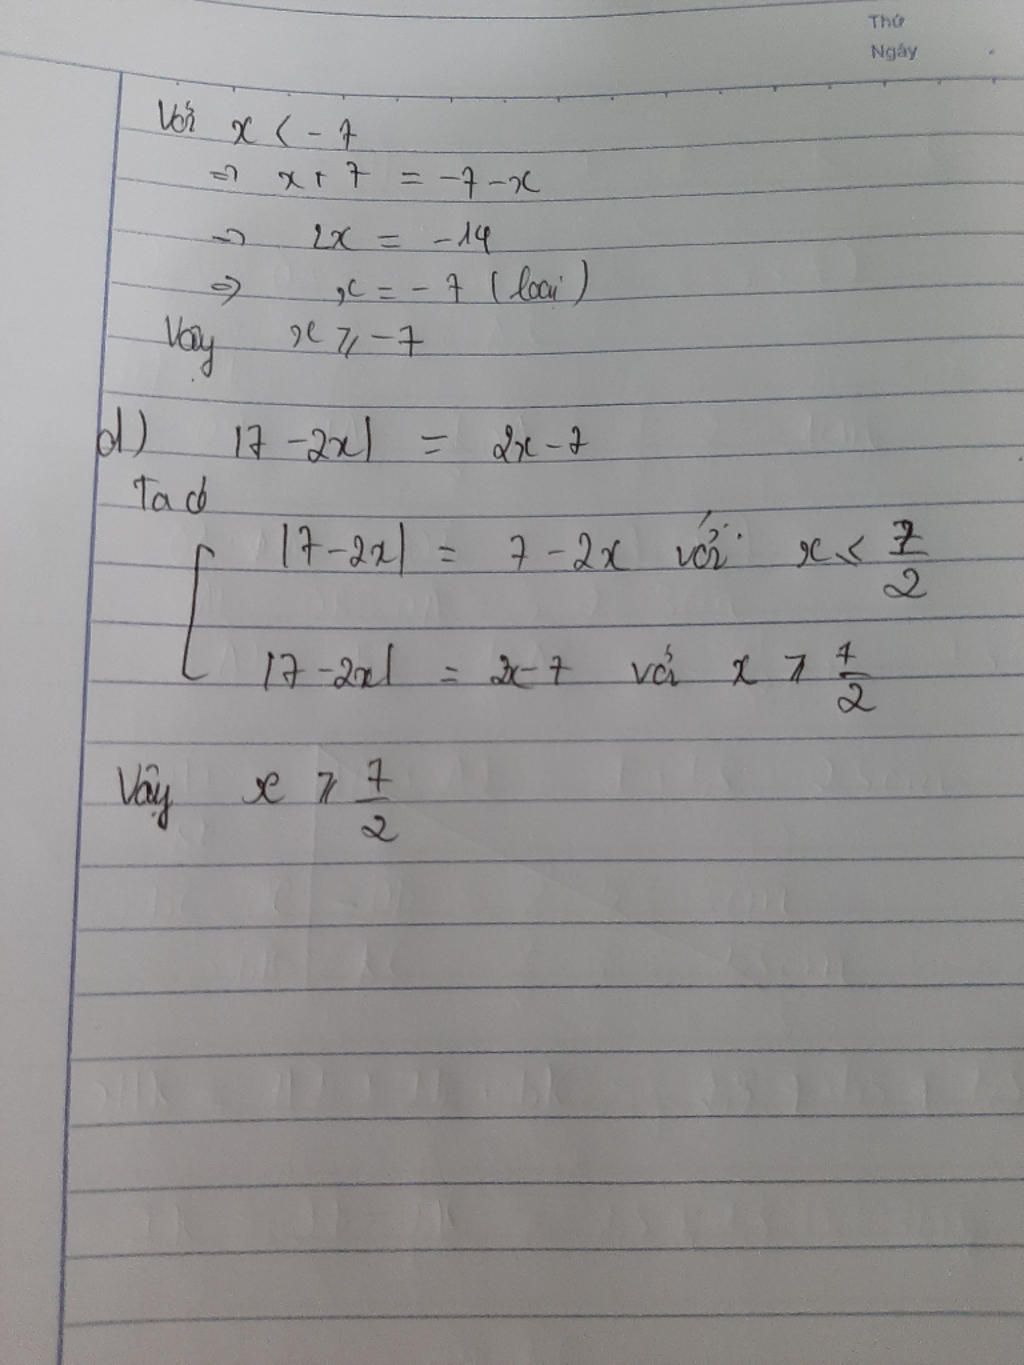 Thứ
Ngày
Với x < -7
=> x + 7 = -7 - x
=> 2x = -14
=> x = -7 (loại)
Vậy x ⩾ -7
d) |7 - 2x| = 2x - 7
Ta có
|7 - 2x| = 7 - 2x với x < 7/2
|7 - 2x| = 2x - 7 với x ⩾ 7/2
Vậy x ⩾ 7/2